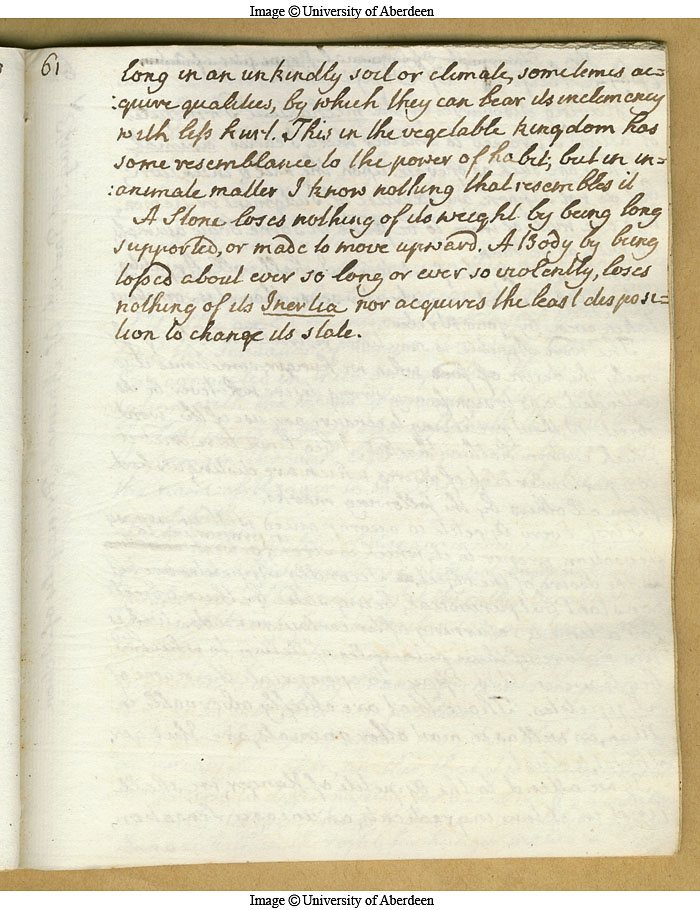 Image © University of Aberdeen
61
long in an unkindly soil or climate, sometimes ac=
:quire qualities, by which they can bear its inclemency
with less hurt. This in the vegetable kingdom has
some resemblance to the power of habit; but in in=
:animate matter I know nothing that resembles it
A Stone loses nothing of its weight by being long
supported, or made to move upward. A Body by being
tossed about ever so long or ever so violently, loses
nothing of its Inertia nor acquires the least disposi=
tion to change its state.
Image © University of Aberdeen